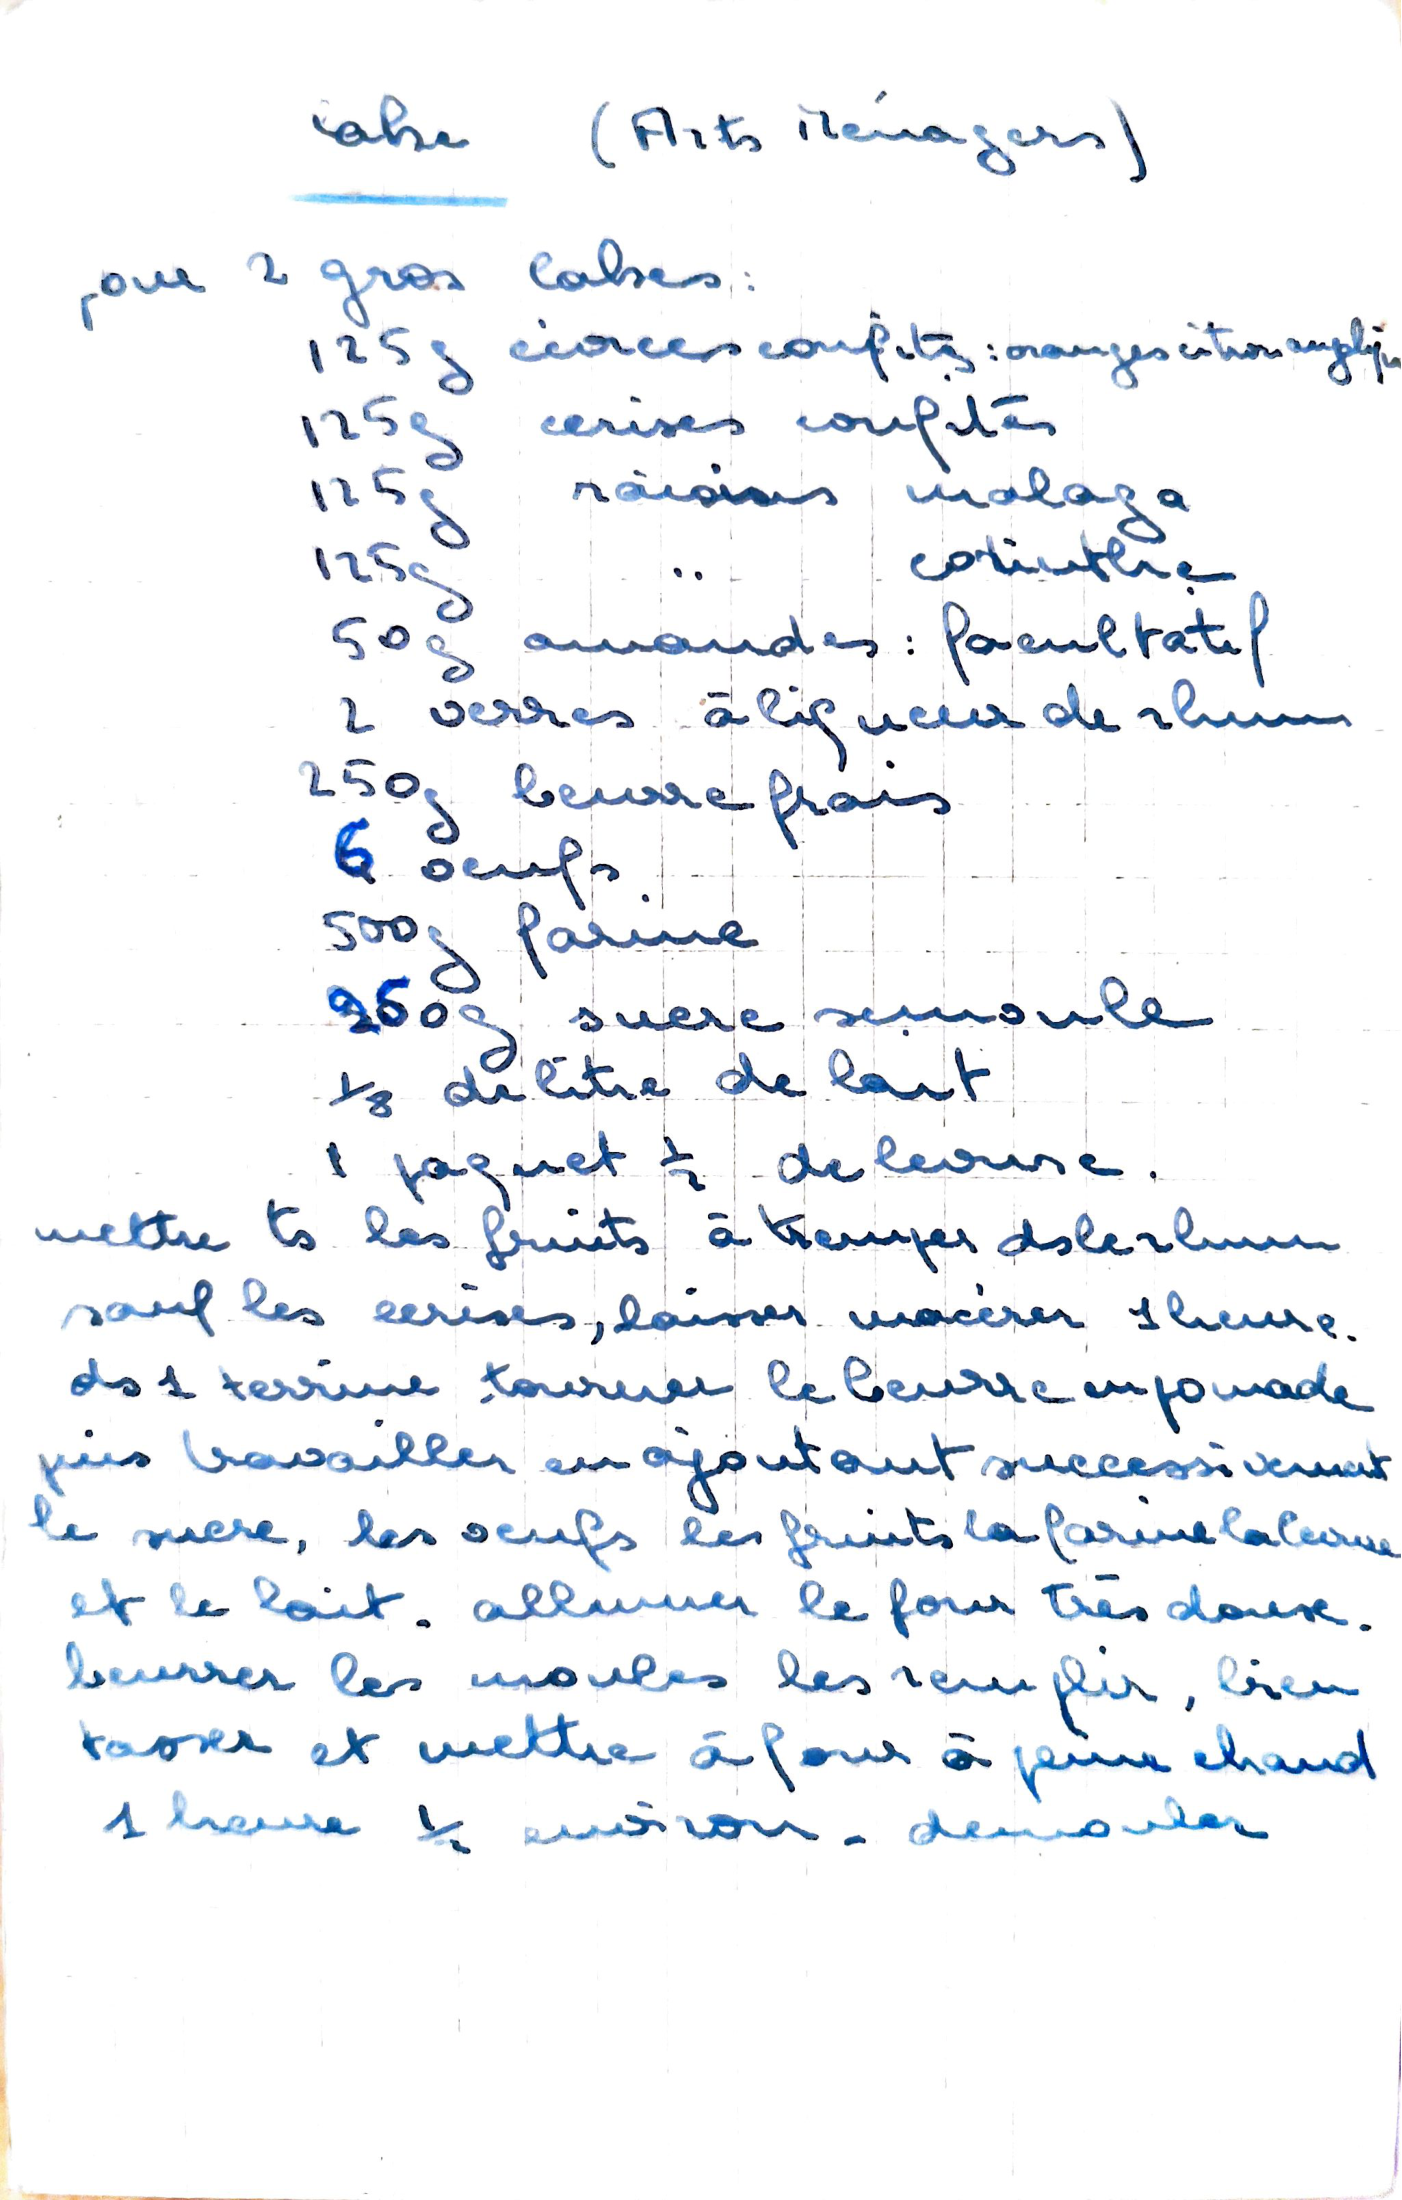 cake (Arts Ménagers)
pour 2 gros cakes :
125g écorces confites : oranges citron angélique
125g cerises confites
125g raisins malaga
125g " corinthe
50g amandes : facultatif
2 verres à liqueur de rhum
250g beurre frais
6 oeufs
500g farine
250g sucre semoule
1/8 de litre de lait
1 paquet 1/2 de levure.
mettre ts les fruits à tremper ds le rhum
sauf les cerises, laisser macérer 1 heure.
ds 1 terrine tourner le beurre en pomade
puis travailler en ajoutant successivement
le sucre, les oeufs les fruits la farine la levure
et le lait. allumer le four très doux.
beurrer les moules les remplir, bien
tasser et mettre à four à peine chaud
1 heure 1/2 environ - demouler